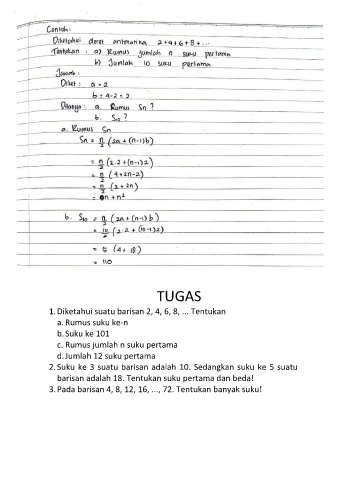 Contoh:
Diketahui deret aritmatika 2+4+6+8+...
Tentukan : a) Rumus jumlah n suku pertama
b) Jumlah 10 suku pertama
Jawab :
Diket : a = 2
b = 4-2 = 2
Ditanya : a. Rumus Sn ?
b. S10 ?
a. Rumus Sn
Sn = n/2 (2a + (n-1)b)
= n/2 (2.2+(n-1)2)
= n/2 (4+2n-2)
= n/2 (2+2n)
= n + n²
b. S10 = n/2 (2a + (n-1)b)
= 10/2 (2.2 + (10-1)2)
= 5 (4+ 18)
= 110
TUGAS
1. Diketahui suatu barisan 2, 4, 6, 8, ... Tentukan
a. Rumus suku ke-n
b. Suku ke 101
c. Rumus jumlah n suku pertama
d. Jumlah 12 suku pertama
2. Suku ke 3 suatu barisan adalah 10. Sedangkan suku ke 5 suatu
barisan adalah 18. Tentukan suku pertama dan beda!
3. Pada barisan 4, 8, 12, 16, ..., 72. Tentukan banyak suku!